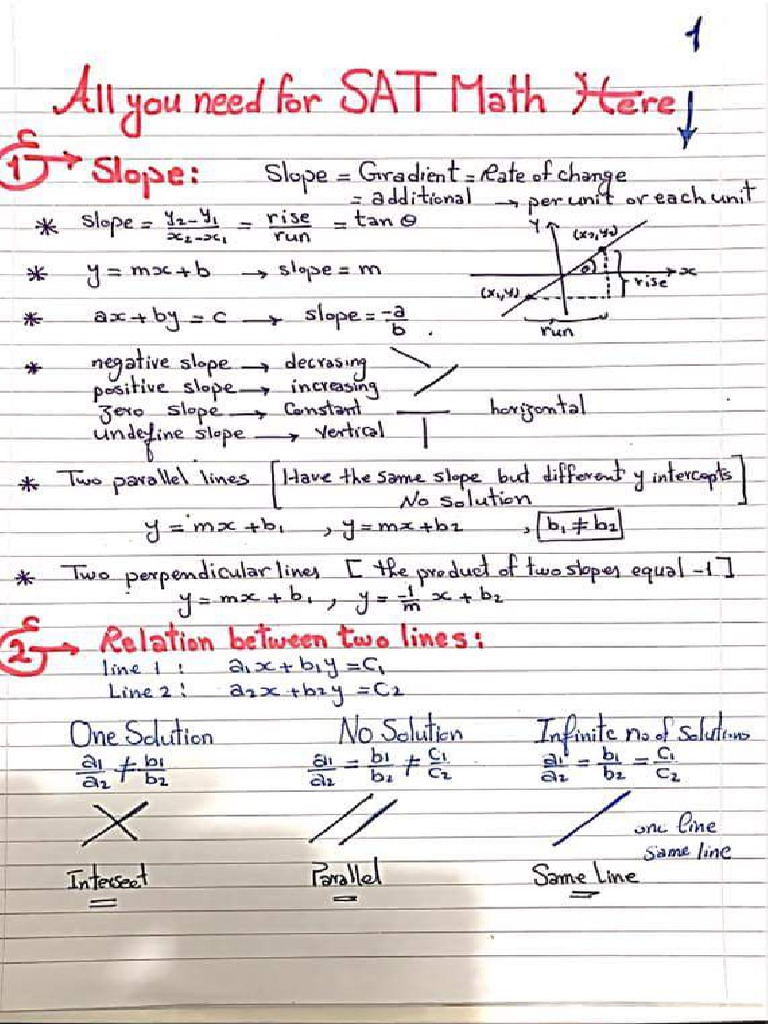 1
All you need for SAT Math Here ↓
1 → Slope: Slope = Gradient = Rate of change
= additional → per unit or each unit
* slope = y₂-y₁/x₂-x₁ = rise/run = tan θ
Y (x₂,y₂)
* y = mx+b → slope = m
θ x
(x₁,y₁) rise
* ax+by = c → slope = -a/b .
run
* negative slope → decrasing
positive slope → increasing
zero slope → Constant horizontal
undefine slope → vertical
* Two parallel lines [Have the same slope but different y intercepts
No solution]
y = mx+b₁ , y=mx+b₂ , b₁ ≠ b₂
* Two perpendicular lines [ the product of two slopes equal -1 ]
y = mx+b₁ , y = -1/m x + b₂
2 → Relation between two lines:
line 1 : a₁x + b₁y = C₁
Line 2 : a₂x + b₂y = C₂
One Solution No Solution Infinite no of solutions
a₁/a₂ ≠ b₁/b₂ a₁/a₂ = b₁/b₂ ≠ C₁/C₂ a₁/a₂ = b₁/b₂ = C₁/C₂
one line
same line
Intersect Parallel Same Line